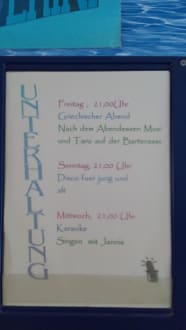 UNTERHALTUNG
Freitag, 21,00Uhr
Griechischer Abend
Nach dem Abendessen Musik
und Tanz auf der Barterasse
Sonntag, 21,00 Uhr
Disco fuer jung und
alt
Mittwoch, 21,00 Uhr
Karaoke
Singen mit Janna